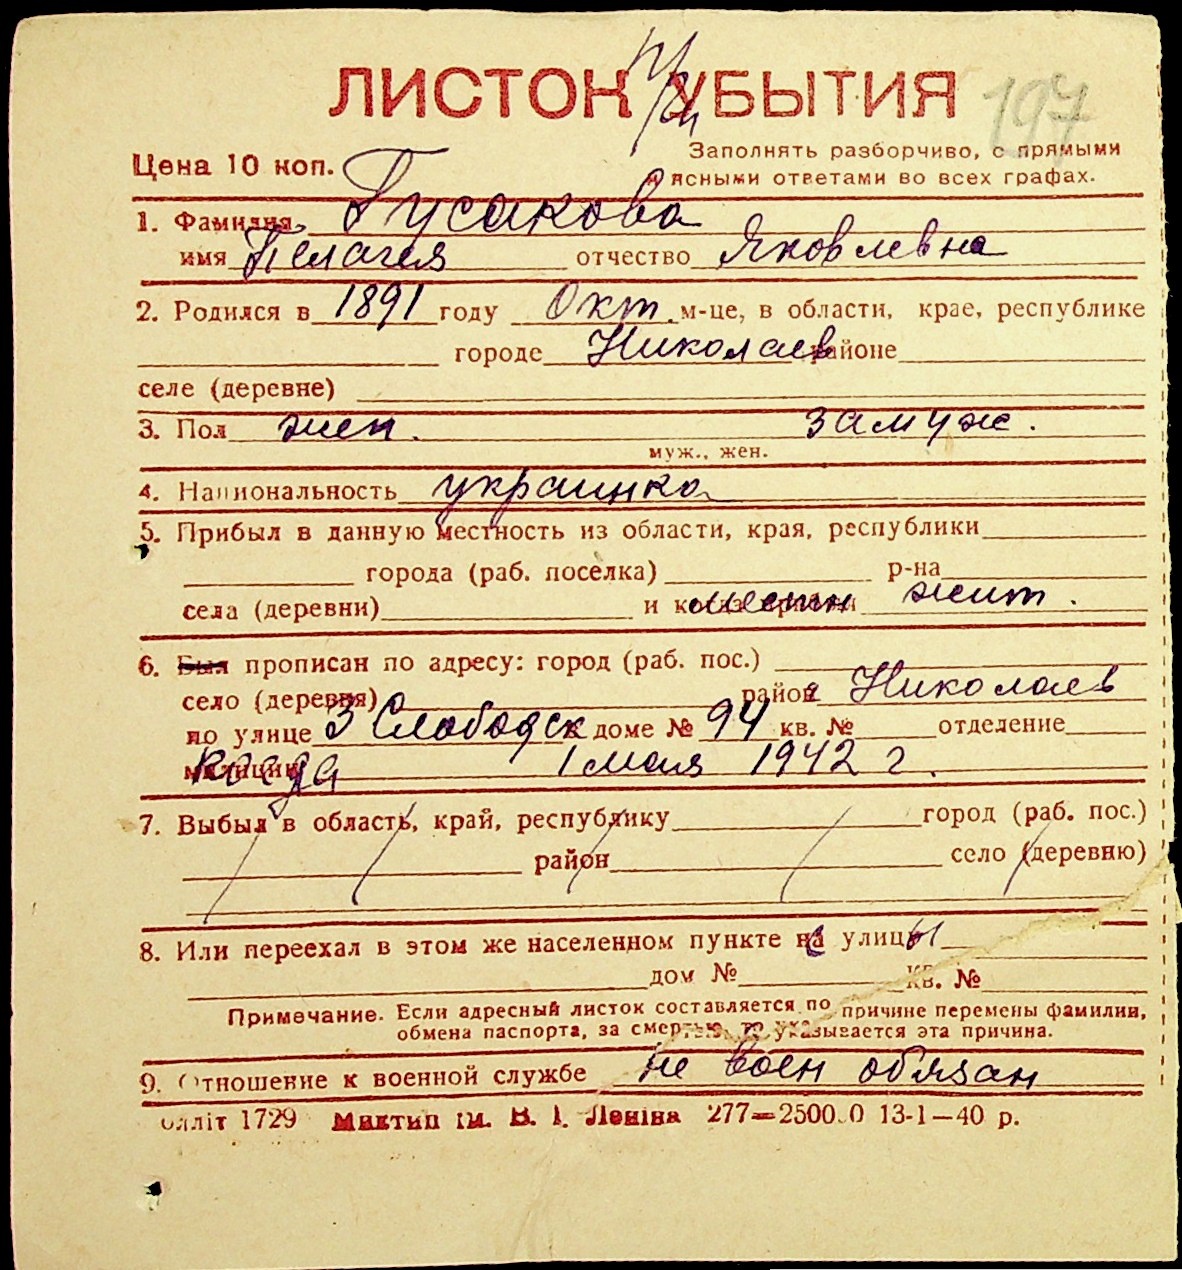 ЛИСТОК УБЫТИЯ 197
Заполнять разборчиво, с прямыми
Цена 10 коп. и ясными ответами во всех графах.
1. Фамилия Гусакова
имя Пелагея отчество Яковлевна
2. Родился в 1891 году Окт. м-це, в области, крае, республике
городе Николаев районе
селе (деревне)
3. Пол жен. замуж.
муж., жен.
4. Национальность украинка
5. Прибыл в данную местность из области, края, республики
города (раб. поселка) р-на
села (деревни) и когда прибыл местн жит.
6. Был прописан по адресу: город (раб. пос.)
село (деревня) район Николаев
по улице 3 Слободск доме № 94 кв. № отделение
милиции когда 1 мая 1942 г.
7. Выбыл в область, край, республику город (раб. пос.)
район село (деревню)
8. Или переехал в этом же населенном пункте на улицы
дом № кв. №
Примечание. Если адресный листок составляется по причине перемены фамилии,
обмена паспорта, за смертью, то указывается эта причина.
9. Отношение к военной службе не воен обязан
олліт 1729 Миктип ім. В. І. Леніна 277—25000 13-1—40 р.